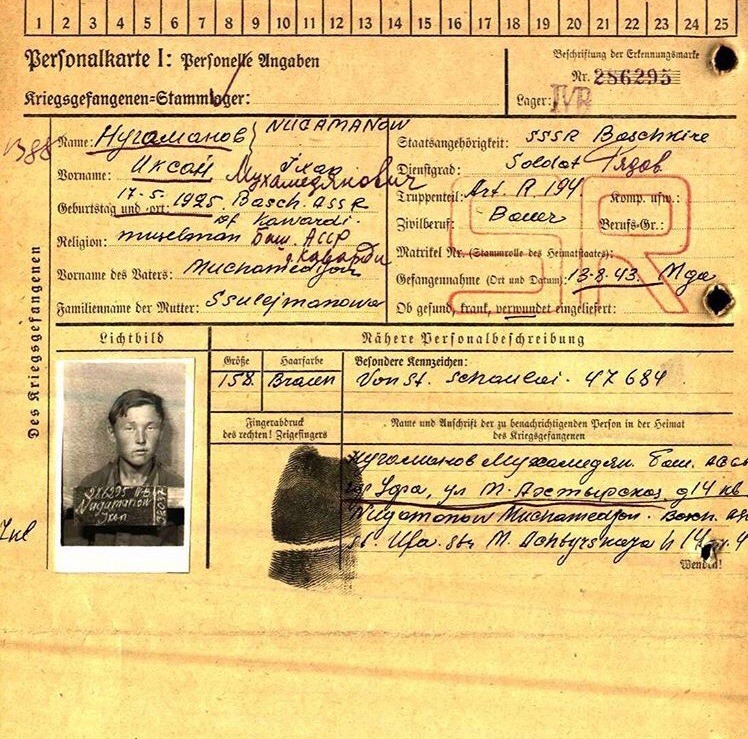 1 2 3 4 5 6 7 8 9 10 11 12 13 14 15 16 17 18 19 20 21 22 23 24 25
Personalkarte I: Personelle Angaben
Kriegsgefangenen=Stammlager:
Beschriftung der Erkennungsmarke
Nr. 286295
Lager: IVB
Des Kriegsgefangenen
Name: Нугаманов NUGAMANOW
Vorname: Иксан Мухамедянович
Geburtstag und =ort: 17-5. 1925 Basch. ASSR
Kawardi.
Religion: muselman Баш. АССР
д. Каварди
Vorname des Vaters: Muchamedjan
Familienname der Mutter: Ssulejmanowa
Staatsangehörigkeit: SSSR Baschkire
Dienstgrad: Soldat
Truppenteil: Art. R. 194 Komp. usw.:
Zivilberuf: Bauer Berufs-Gr.:
Matrikel Nr. (Stammrolle des Heimatstaates):
Gefangennahme (Ort und Datum): 13-8.43. Mga
Ob gesund, krank, verwundet eingeliefert:
SR
Lichtbild
Nähere Personalbeschreibung
Größe
Haarfarbe
Besondere Kennzeichen:
158. Braun Von St. Schaulei. 47684
Fingerabdruck
des rechten! Zeigefingers
Name und Anschrift der zu benachrichtigenden Person in der Heimat
des Kriegsgefangenen
Нугаманов Мухамедян. Баш. АССР
Уфа, ул М. Ахтырская, д 14 кв
Nugamanow Muchamedjan. Basch. ASS
St. Ufa. Str. M. Achtyrskaja h 14
Wenden!
286295 IVB
Nugamanow